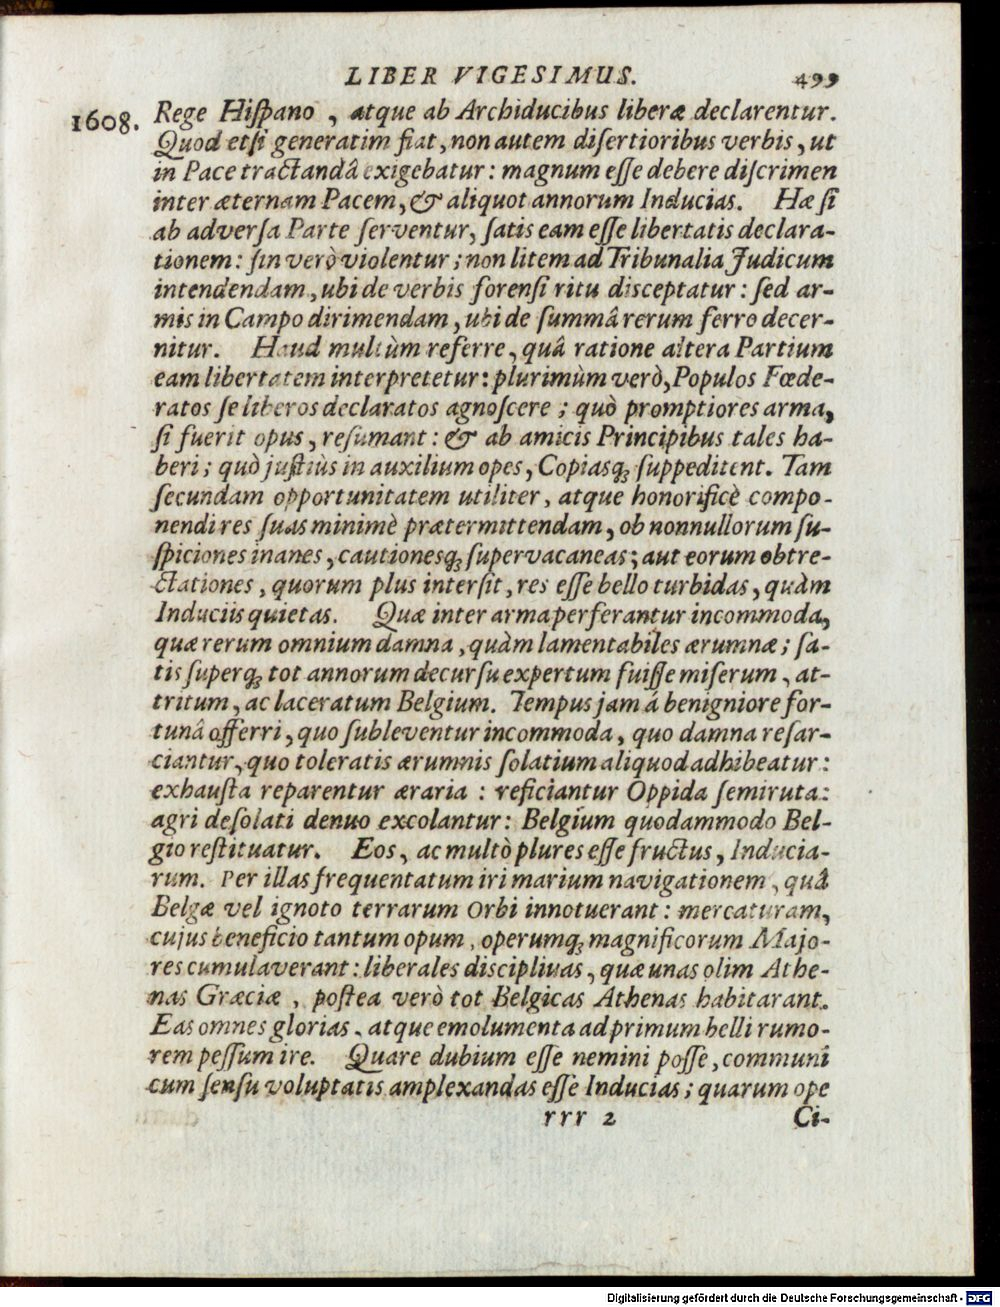 LIBER VIGESIMUS. 499
1608. Rege Hiſpano , atque ab Archiducibus liberæ declarentur.
Quod etſi generatim fiat, non autem diſertioribus verbis, ut
in Pace tractandâ exigebatur: magnum eſſe debere diſcrimen
inter æternam Pacem, & aliquot annorum Inducias. Hæ ſi
ab adverſa Parte ſerventur, ſatis eam eſſe libertatis declara-
tionem: ſin verò violentur; non litem ad Tribunalia Judicum
intendendam, ubi de verbis forenſi ritu disceptatur: ſed ar-
mis in Campo dirimendam, ubi de ſummâ rerum ferro decer-
nitur. Haud multùm referre, quâ ratione altera Partium
eam libertatem interpretetur: plurimùm verò, Populos Fœde-
ratos ſe liberos declaratos agnoſcere; quò promptiores arma,
ſi fuerit opus, reſumant: & ab amicis Principibus tales ha-
beri; quò juſtiùs in auxilium opes, Copiasq; ſuppeditent. Tam
ſecundam opportunitatem utiliter, atque honorificè compo-
nendi res ſuas minimè prætermittendam, ob nonnullorum ſu-
ſpiciones inanes, cautionesq; ſupervacaneas; aut eorum obtre-
ctationes, quorum plus interſit, res eſſe bello turbidas, quàm
Induciis quietas. Quæ inter arma perferantur incommoda,
quæ rerum omnium damna, quàm lamentabiles ærumnæ; ſa-
tis ſuperq; tot annorum decurſu expertum fuiſſe miſerum, at-
tritum, ac laceratum Belgium. Tempus jam â benigniore for-
tunâ offerri, quo ſubleventur incommoda, quo damna reſar-
ciantur, quo toleratis ærumnis ſolatium aliquod adhibeatur:
exhauſta reparentur æraria : reficiantur Oppida ſemiruta:
agri deſolati denuo excolantur: Belgium quodammodo Bel-
gio reſtituatur. Eos, ac multò plures eſſe fructus, Inducia-
rum. Per illas frequentatum iri marium navigationem, quâ
Belgæ vel ignoto terrarum Orbi innotuerant: mercaturam,
cujus beneficio tantum opum, operumq; magnificorum Majo-
res cumulaverant: liberales disciplinas, quæ unas olim Athe-
nas Græciæ , poſtea verò tot Belgicas Athenas habitarant.
Eas omnes glorias, atque emolumenta ad primum belli rumo-
rem peſſum ire. Quare dubium eſſe nemini poſſe, communi
cum ſenſu voluptatis amplexandas eſſe Inducias; quarum ope
rrr 2 Ci-
Digitalisierung gefördert durch die Deutsche Forschungsgemeinschaft - DFG